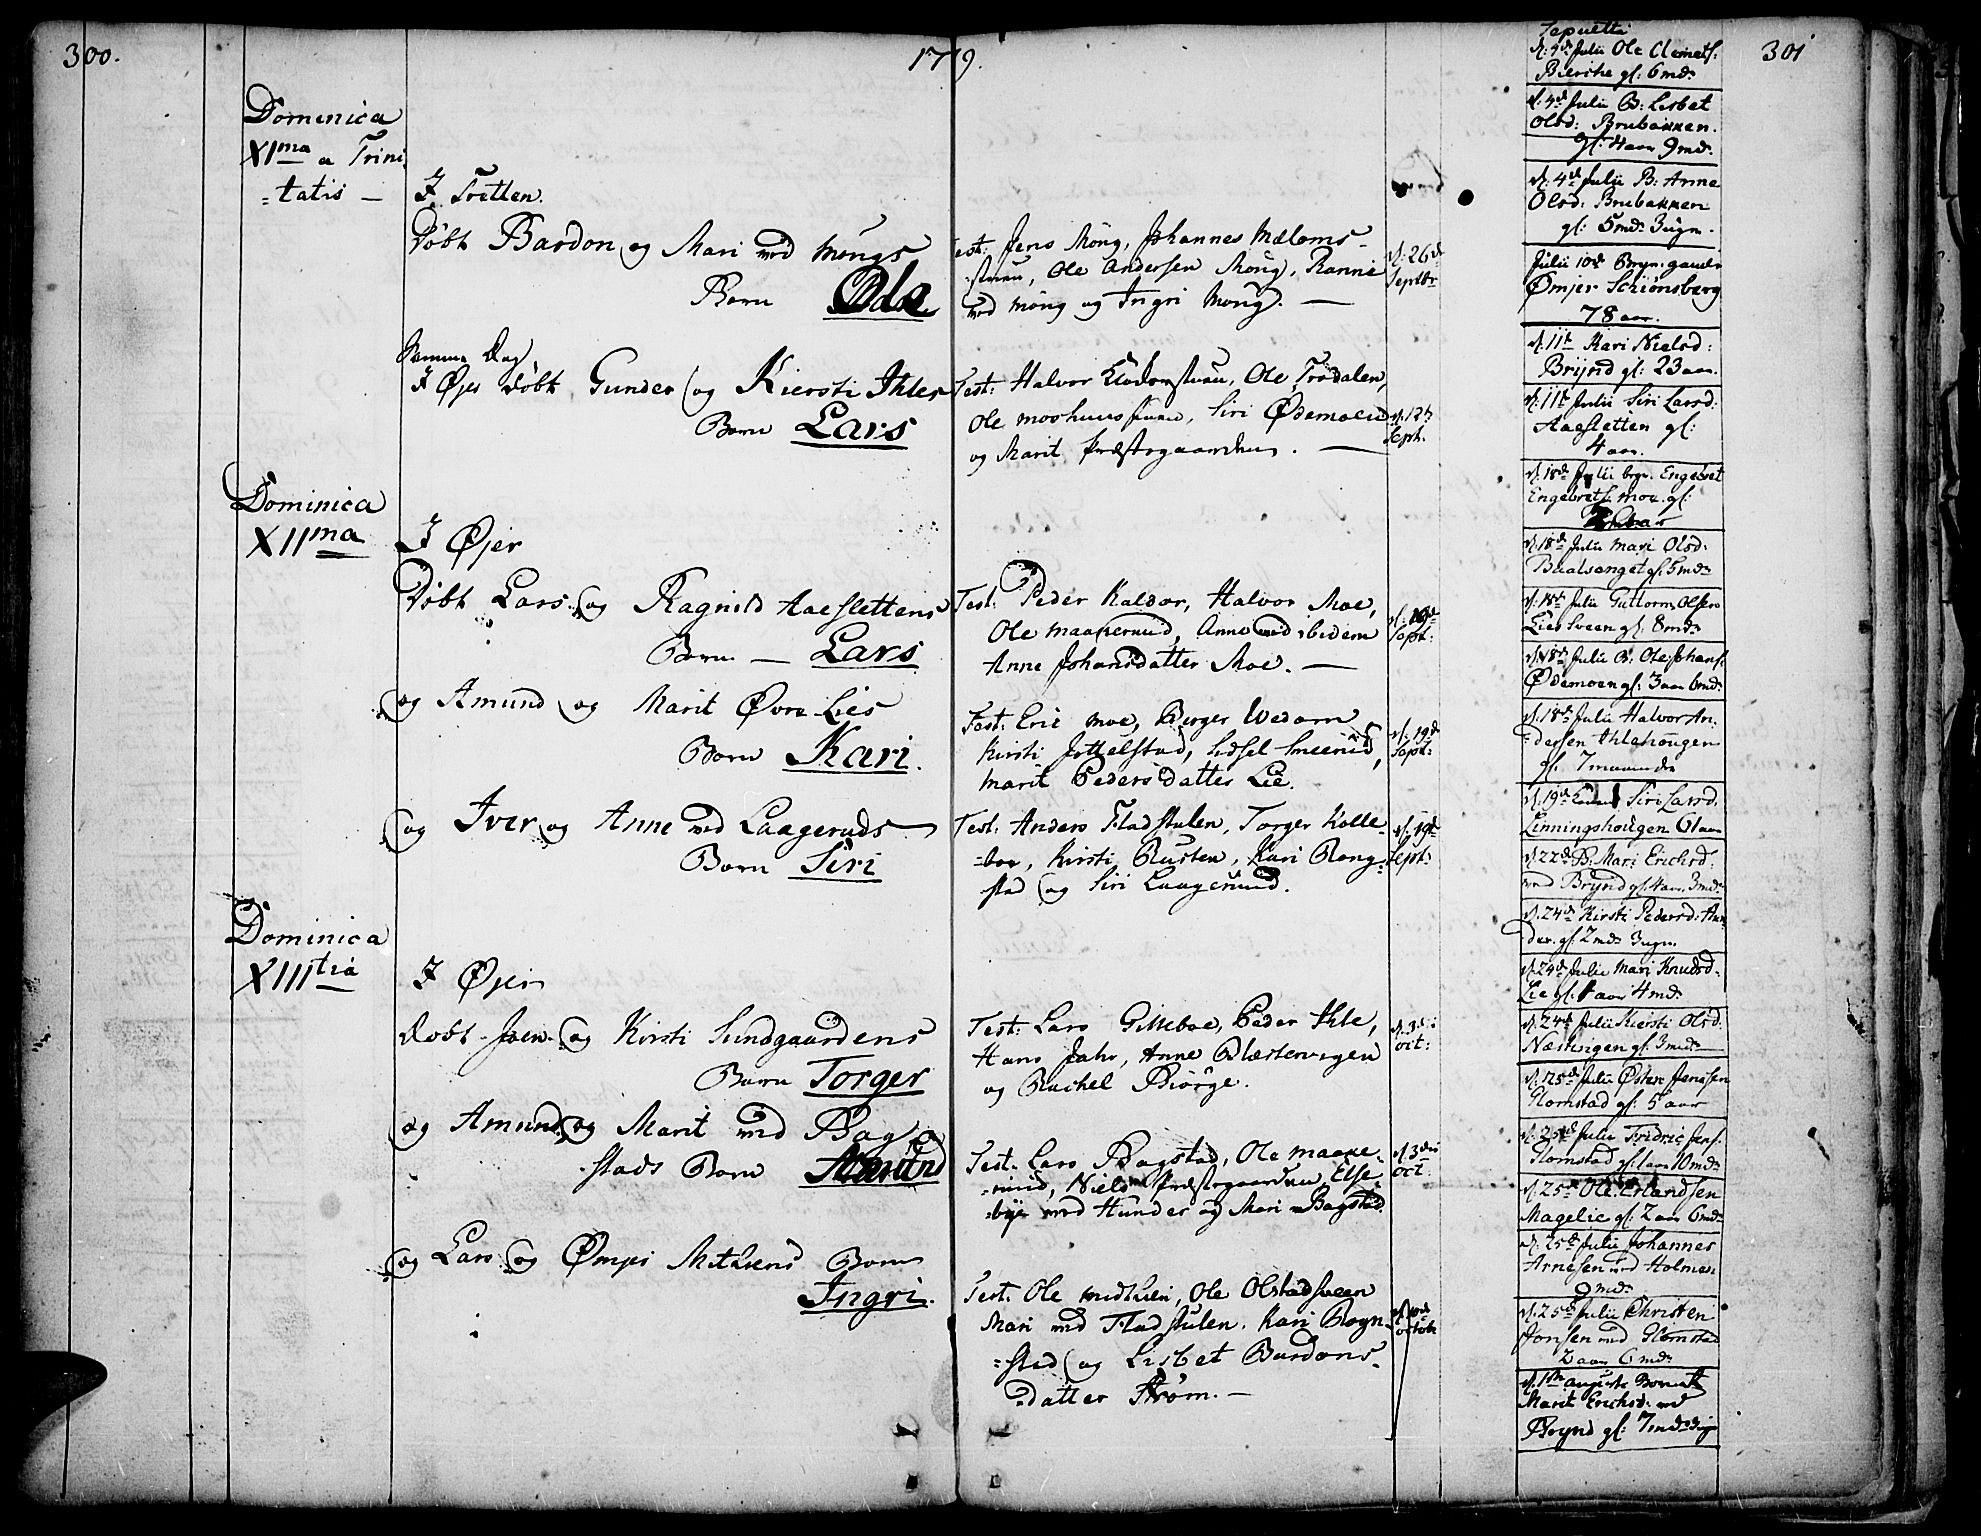 300.
1779.
301
Dominica
XI ma a Trini
=tatis —
I Tretten.
Døbt Bardon og Mari med Mongs
Barn Oda
Test: Jens Mong, Johannes Mæloms-
stuen, Ole Andersen Mong, Ranni
med Mong og Ingri Mong. —
d. 26de
Septbr
Samme Dag
I Øjer døbt Gunder og Kiersti Ihles
Barn Lars
Test: Halvor Kladerstuen, Ole Trodalen,
Ole Moshuus, Siri Ødemoen
og Marit Præstegaarden. —
d. 12te
Sept.
Dominica
XII ma
I Øjer
Døbt Lars og Ragnild Aaeslettens
Barn — Lars
Test: Peder Kaldor, Halvor Moe,
Ole Maageruud, Anne med ibidem
Anne Johansdatter Moe. —
d: 19de
Sept:
og Amund og Marit Øvre Lies
Barn Kari.
Test: Eric Moe, Berger Wedarn
Kirsti Jottelstad, Sidsel Smeerud,
Marit Pedersdatter Lie.
d. 19de
Sept:
og Iver og Anne med Laageruds
Barn Siri
Test: Anders Fladstulen, Torger Kolle-
=boe, Kirsti Rusten, Kari Rong-
stad og Siri Laageruud.
d. 19de
Sept:
Dominica
XIII tia
I Øjer
Døbt Joen og Kirsti Sundgaardens
Barn Torger
Test: Lars Gilleboe, Peder Ihle,
Hans Jahr, Anne Blæstervigen
og Rachel Biørge.
d. 3die
oct:
og Amund og Marit med Bag-
stads Barn Amund
Test. Lars Bagstad, Ole Maage-
=ruud, Niels Præstegaarden, Else-
=bye med Hunder og Mari Bagstad.
d. 3die
oct
og Lars og Ømjer Mithuns Barn
Ingri.
Test: Ole Midthuen, Ole Olstadsveen
Mari med Fladstulen. Kari Rogn-
=stad og Lisbet Bardons-
=datter Strøm. —
d. 10de
octobr
Sepulti
d. 4de Julii Ole Clemets:
Bierche gl: 6 md:
d. 4de Julii B: Lisbet
Olsd: Brubakken.
gl: 4 aar 9 md:
d: 4de Julii B: Anne
Olsd: Brubakken
gl: 5 md: 3 ugr.
Julii 10de Bryn: gamle
Ømjer Schiønsberg
78 aar.
d. 11te Kari Nielsd:
Brynd gl: 23 aar.
d: 11te Julii Siri Larsd:
Aaesletten gl:
4 aar.
d. 18de Julii begr. Engebret
Engebrets. Moe. gl:
d. 18de Julii Mari Olsd:
Baalsenget gl. 5 md:
d: 18de Julii Guttorm Olsen
Lies Sveen gl. 8 md:
d. 18de Julii B. Ole Johans.
Ødemoen gl: 3 aar 6 md:
d. 18de Julii Halvor An-
=dersen Ihlehougen
gl. 7 maaneder
d. 19de Siri Larsd.
Linningshougen 61 aar
d. 22de B. Mari Erichsd:
med Brynd gl. 4 aar 3 md:
d. 24de Kirsti Pedersd: Hun-
der. gl. 2 md. 3 ugr.
d. 24de Julii Mari Knudsd.
Lie gl. 1 aar 4 md:
d. 24de Julii Kiersti Olsd:
Næstvigen gl: 3 md:
d. 25de Julii Østen Jensen
Glomstad gl: 5 aar
d. 25de Julii Fridric Jens.
Glomstad gl. 1 aar 10 md:
d. 25de Ole Erlandsen
Magelie gl: 2 aar 6 md:
d. 25de Julii Johannes
Arnesen med Holmen
9 md:
d. 25de Julii Christen
Jonsen med Glomstad
2 aar 6 md:
d. 1ste Augusti
Marit Erichsd: med
Brynd gl: 7 md: 3 ugr